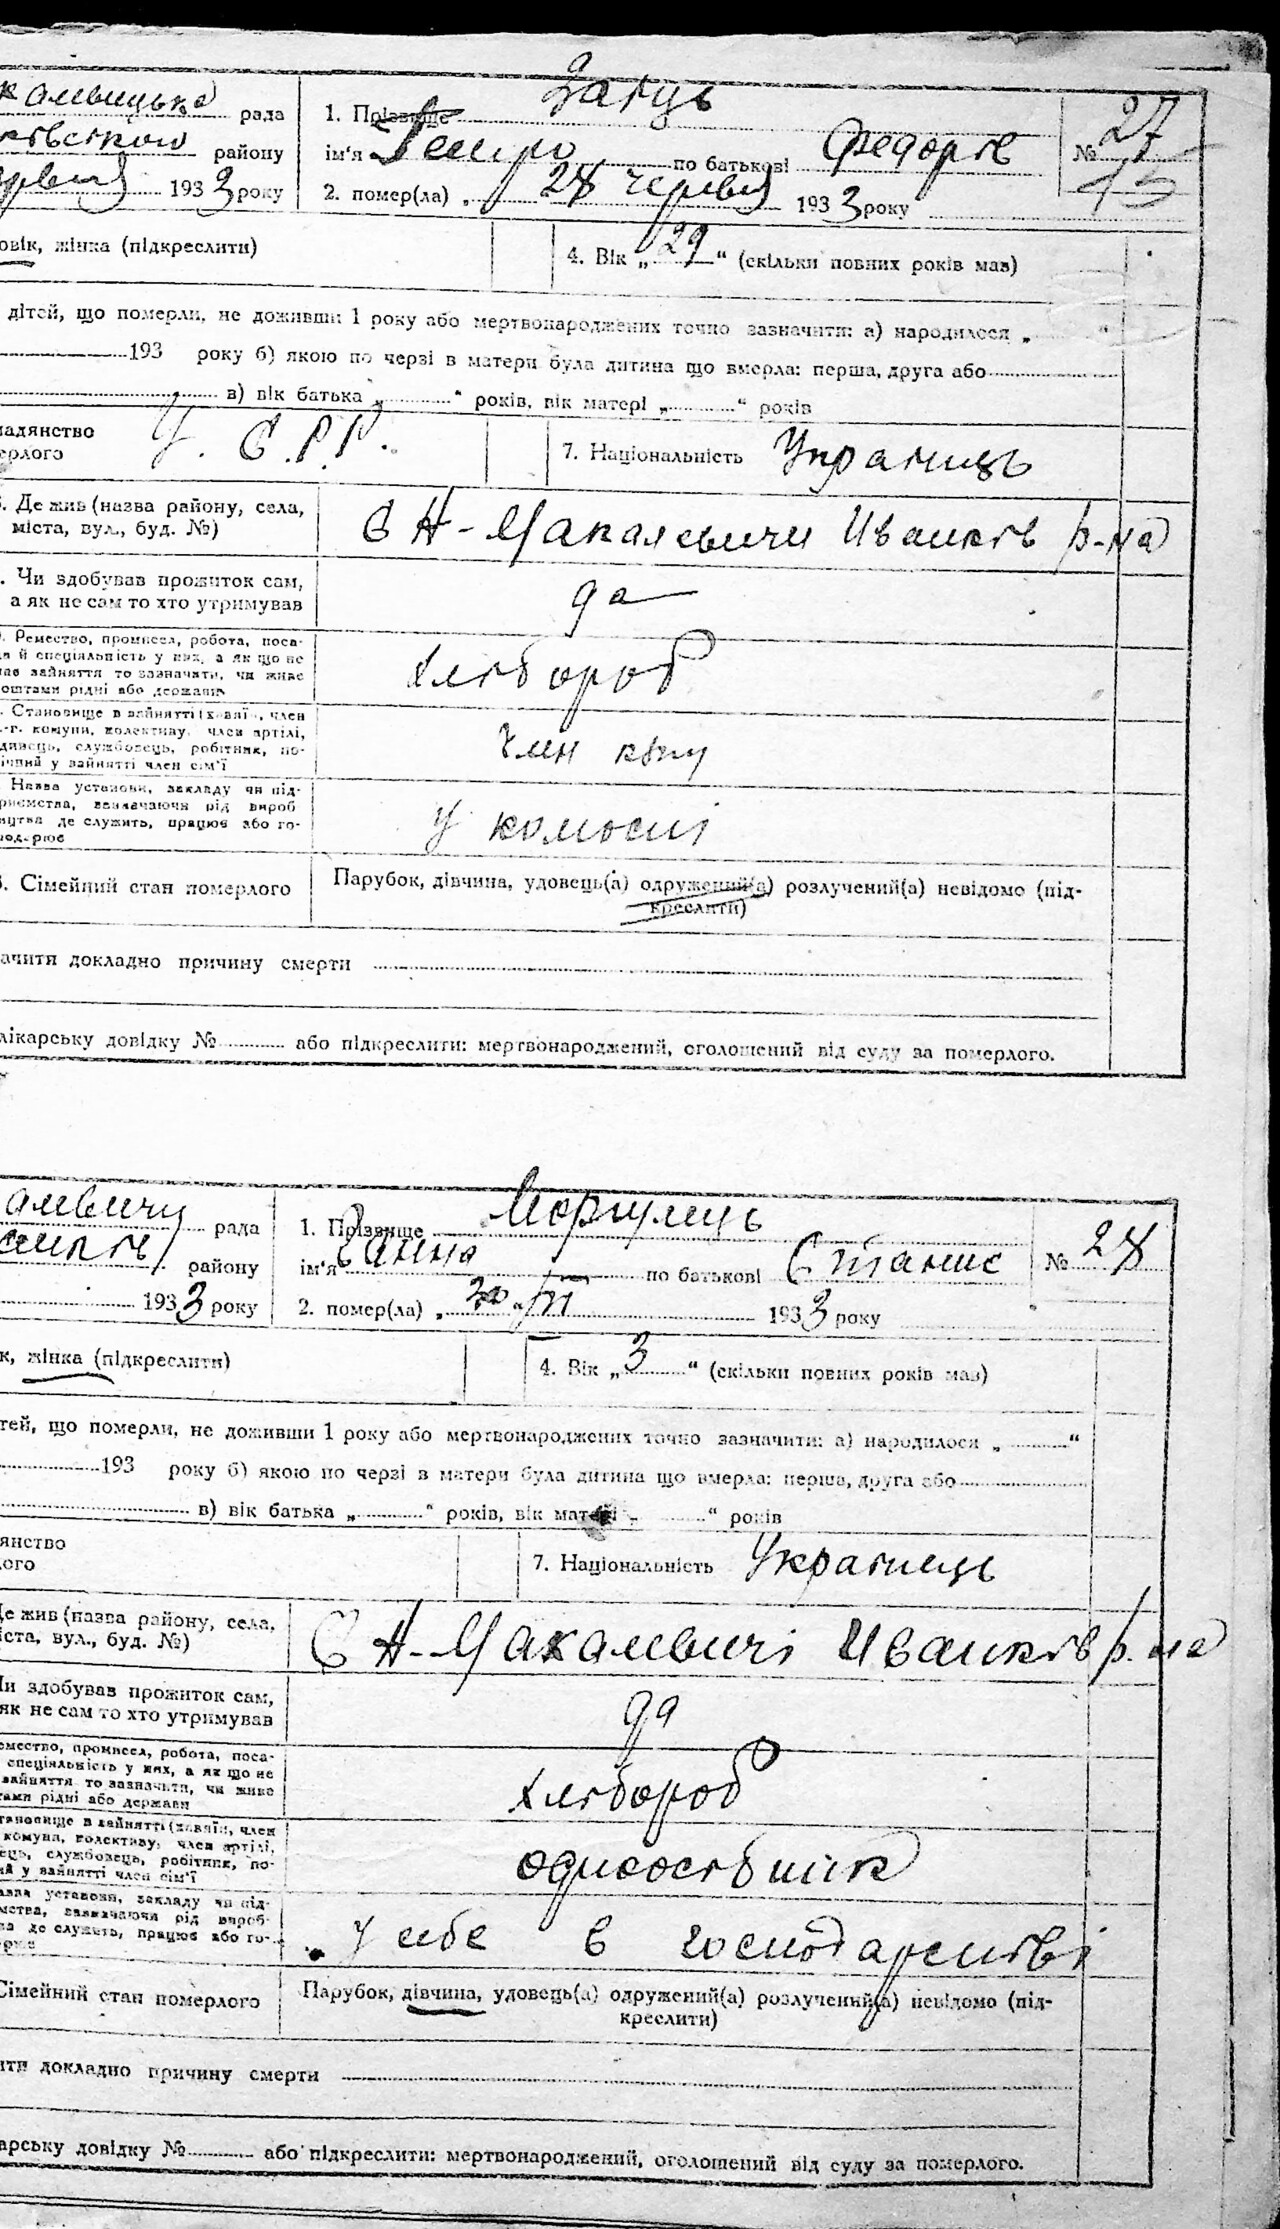 Заяць
рада 1. Прізвище № 27
району ім'я Петро по батькові Федорів 15
193 3 року 2. помер(ла) „ 28 червня 193 3 року
овік, жінка (підкреслити) 4. Вік „ 29 “ (скільки повних років мав)
дітей, що померли, не доживши 1 року або мертвонароджених точно зазначити: а) народилося „ “
193 року б) якою по черзі в матери була дитина що вмерла: перша, друга або
в) вік батька „ “ років, вік матері „ “ років
мадянство У. С.Р.Р. 7. Національність Українець
ерлого
. Де жив (назва району, села, С Н-Макалевичи Иванків р-на
міста, вул., буд. №)
. Чи здобував прожиток сам, да
а як не сам то хто утримував
. Ремество, промисел, робота, поса- хлібороб
й спеціяльність у них, а як що не
має зайняття то зазначити, чи живе
коштами рідні або держави
. Становище в зайнятті (хазяїн, член член
-г. комуни, колективу, член артілі,
дивець, службовець, робітник, по-
ічний у зайнятті член сім'ї
Назва установи, закладу чи під- У колхоспі
приємства, зазначаючи рід вироб
ництва де служить, працює або го-
. Сімейний стан померлого Парубок, дівчина, удовець(а) одружений(а) розлучений(а) невідомо (під-
креслити)
ачити докладно причину смерти
лікарську довідку № або підкреслити: мертвонароджений, оголошений від суду за померлого.
рада 1. Прізвище
району ім'я Ганна по батькові Станис № 28
193 3 року 2. помер(ла) „ 30 “ 193 3 року
к, жінка (підкреслити) 4. Вік „ 3 “ (скільки повних років мав)
тей, що померли, не доживши 1 року або мертвонароджених точно зазначити: а) народилося „ “
193 року б) якою по черзі в матери була дитина що вмерла: перша, друга або
в) вік батька „ “ років, вік матері „ “ років
янство 7. Національність Українець
ого
Де жив (назва району, села, С Н-Макалевичі Иванків р-на
іста, вул., буд. №)
Чи здобував прожиток сам, да
як не сам то хто утримував
емество, промисел, робота, поса- хлібороб
спеціяльність у них, а як що не
зайняття то зазначити, чи живе
тами рідні або держави
тановище в зайнятті (хазяїн, член одноосібник
комуни, колективу, член артілі,
ець, службовець, робітник, по-
ий у зайнятті член сім'ї
азва установи, закладу чи під- У себе в господарстві
мства, зазначаючи рід вироб-
ва де служить, працює або го-
Сімейний стан померлого Парубок, дівчина, удовець(а) одружений(а) розлучений(а) невідомо (під-
креслити)
ити докладно причину смерти
арську довідку № або підкреслити: мертвонароджений, оголошений від суду за померлого.